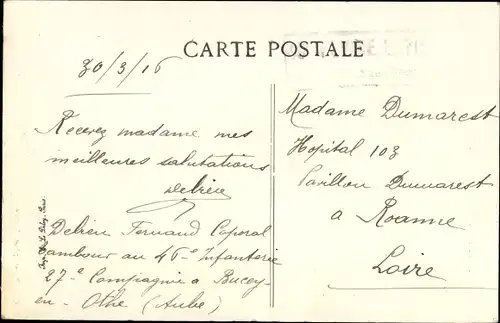 CARTE POSTALE
30/3/16
Recevez madame mes
meilleures salutations
Debrieu
Debrieu Fernand Caporal
tambour au 46e Infanterie
27e Compagnie à Bucey-
en-Othe (Aube)
Madame Dumarest
Hopital 103
Pavillon Dumarest
a Roanne
Loire